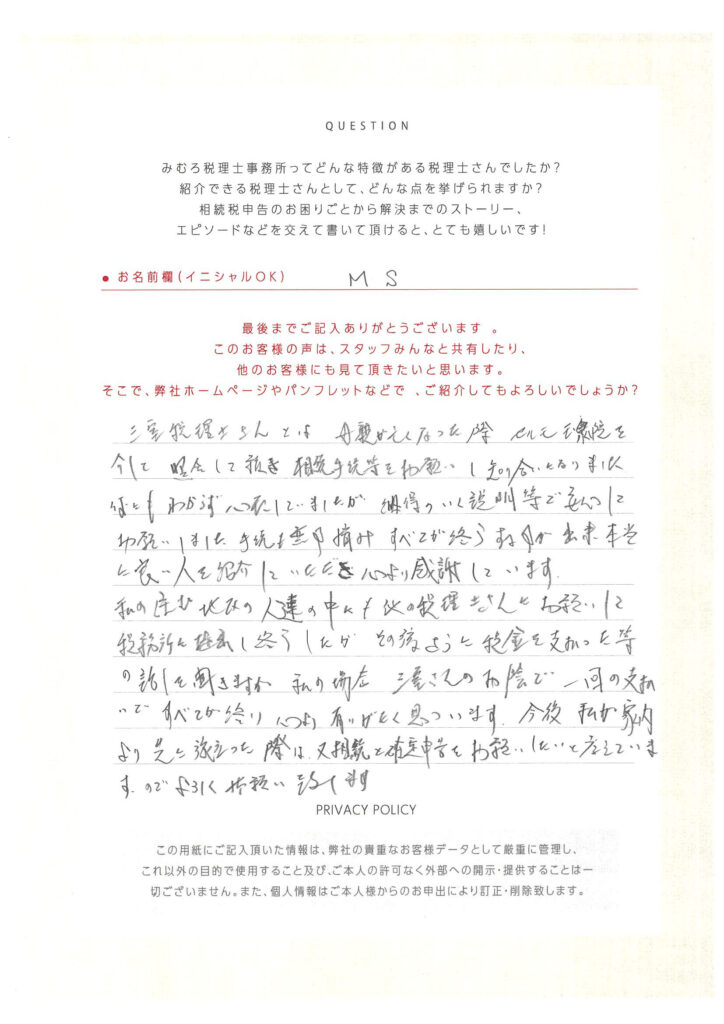 QUESTION
みむろ税理士事務所ってどんな特徴がある税理士さんでしたか?
紹介できる税理士さんとして、どんな点を挙げられますか?
相続税申告のお困りごとから解決までのストーリー、
エピソードなどを交えて書いて頂けると、とても嬉しいです!
● お名前欄(イニシャルOK) M S
最後までご記入ありがとうございます 。
このお客様の声は、スタッフみんなと共有したり、
他のお客様にも見て頂きたいと思います。
そこで、弊社ホームページやパンフレットなどで 、ご紹介してもよろしいでしょうか?
三室税理士さんとは 母親が亡くなった際 セルモ玉泉院を
介して 紹介して頂き 相続手続等をお願いし 知り合いとなりました
何も わからず 心配していましたが 納得のいく説明等で安心して
お願いしました 手続も無事済み すべてが終うする事が出来 本当
に良い人を紹介していただき 心より感謝しています
私の住む 地区の人達の中にも 他の税理士さんにお願いして
税務所に提出し 終うしたが その後 ように 税金を支払った等
の話しを聞きますが 私の場合 三室さんのお陰で 一回の支払
いで すべてが終り 心より有りがたく思っています 今後 私が家内
より先に旅立った際は 又相続と確定申告をお願いしたいと考えていま
す ので よろしくお願い致します
PRIVACY POLICY
この用紙にご記入頂いた情報は、弊社の貴重なお客様データとして厳重に管理し、
これ以外の目的で使用すること及び、ご本人の許可なく外部への開示・提供することは一
切ございません。また、個人情報はご本人様からのお申出により訂正・削除致します。